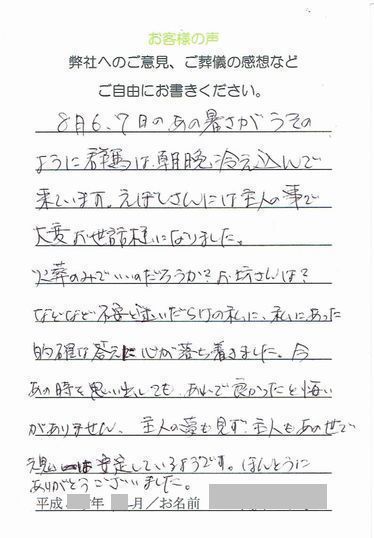 お客様の声
弊社へのご意見、ご葬儀の感想など
ご自由にお書きください。
8月6、7日のあの暑さがうその
ように群馬は朝晩冷え込んで
来ています。えぼしさんには主人の事で
大変お世話様になりました。
火葬のみでいいのだろうか?お坊さんは?
などなど不安と迷いだらけの私に、私にあった
的確な答えに心が落ち着きました。今
あの時を思い出しても、あれで良かったと悔い
がありません、主人の夢も見ず、主人もあの世で
は安定しているようです。ほんとうに
ありがとうございました。
平成 年 月／お名前